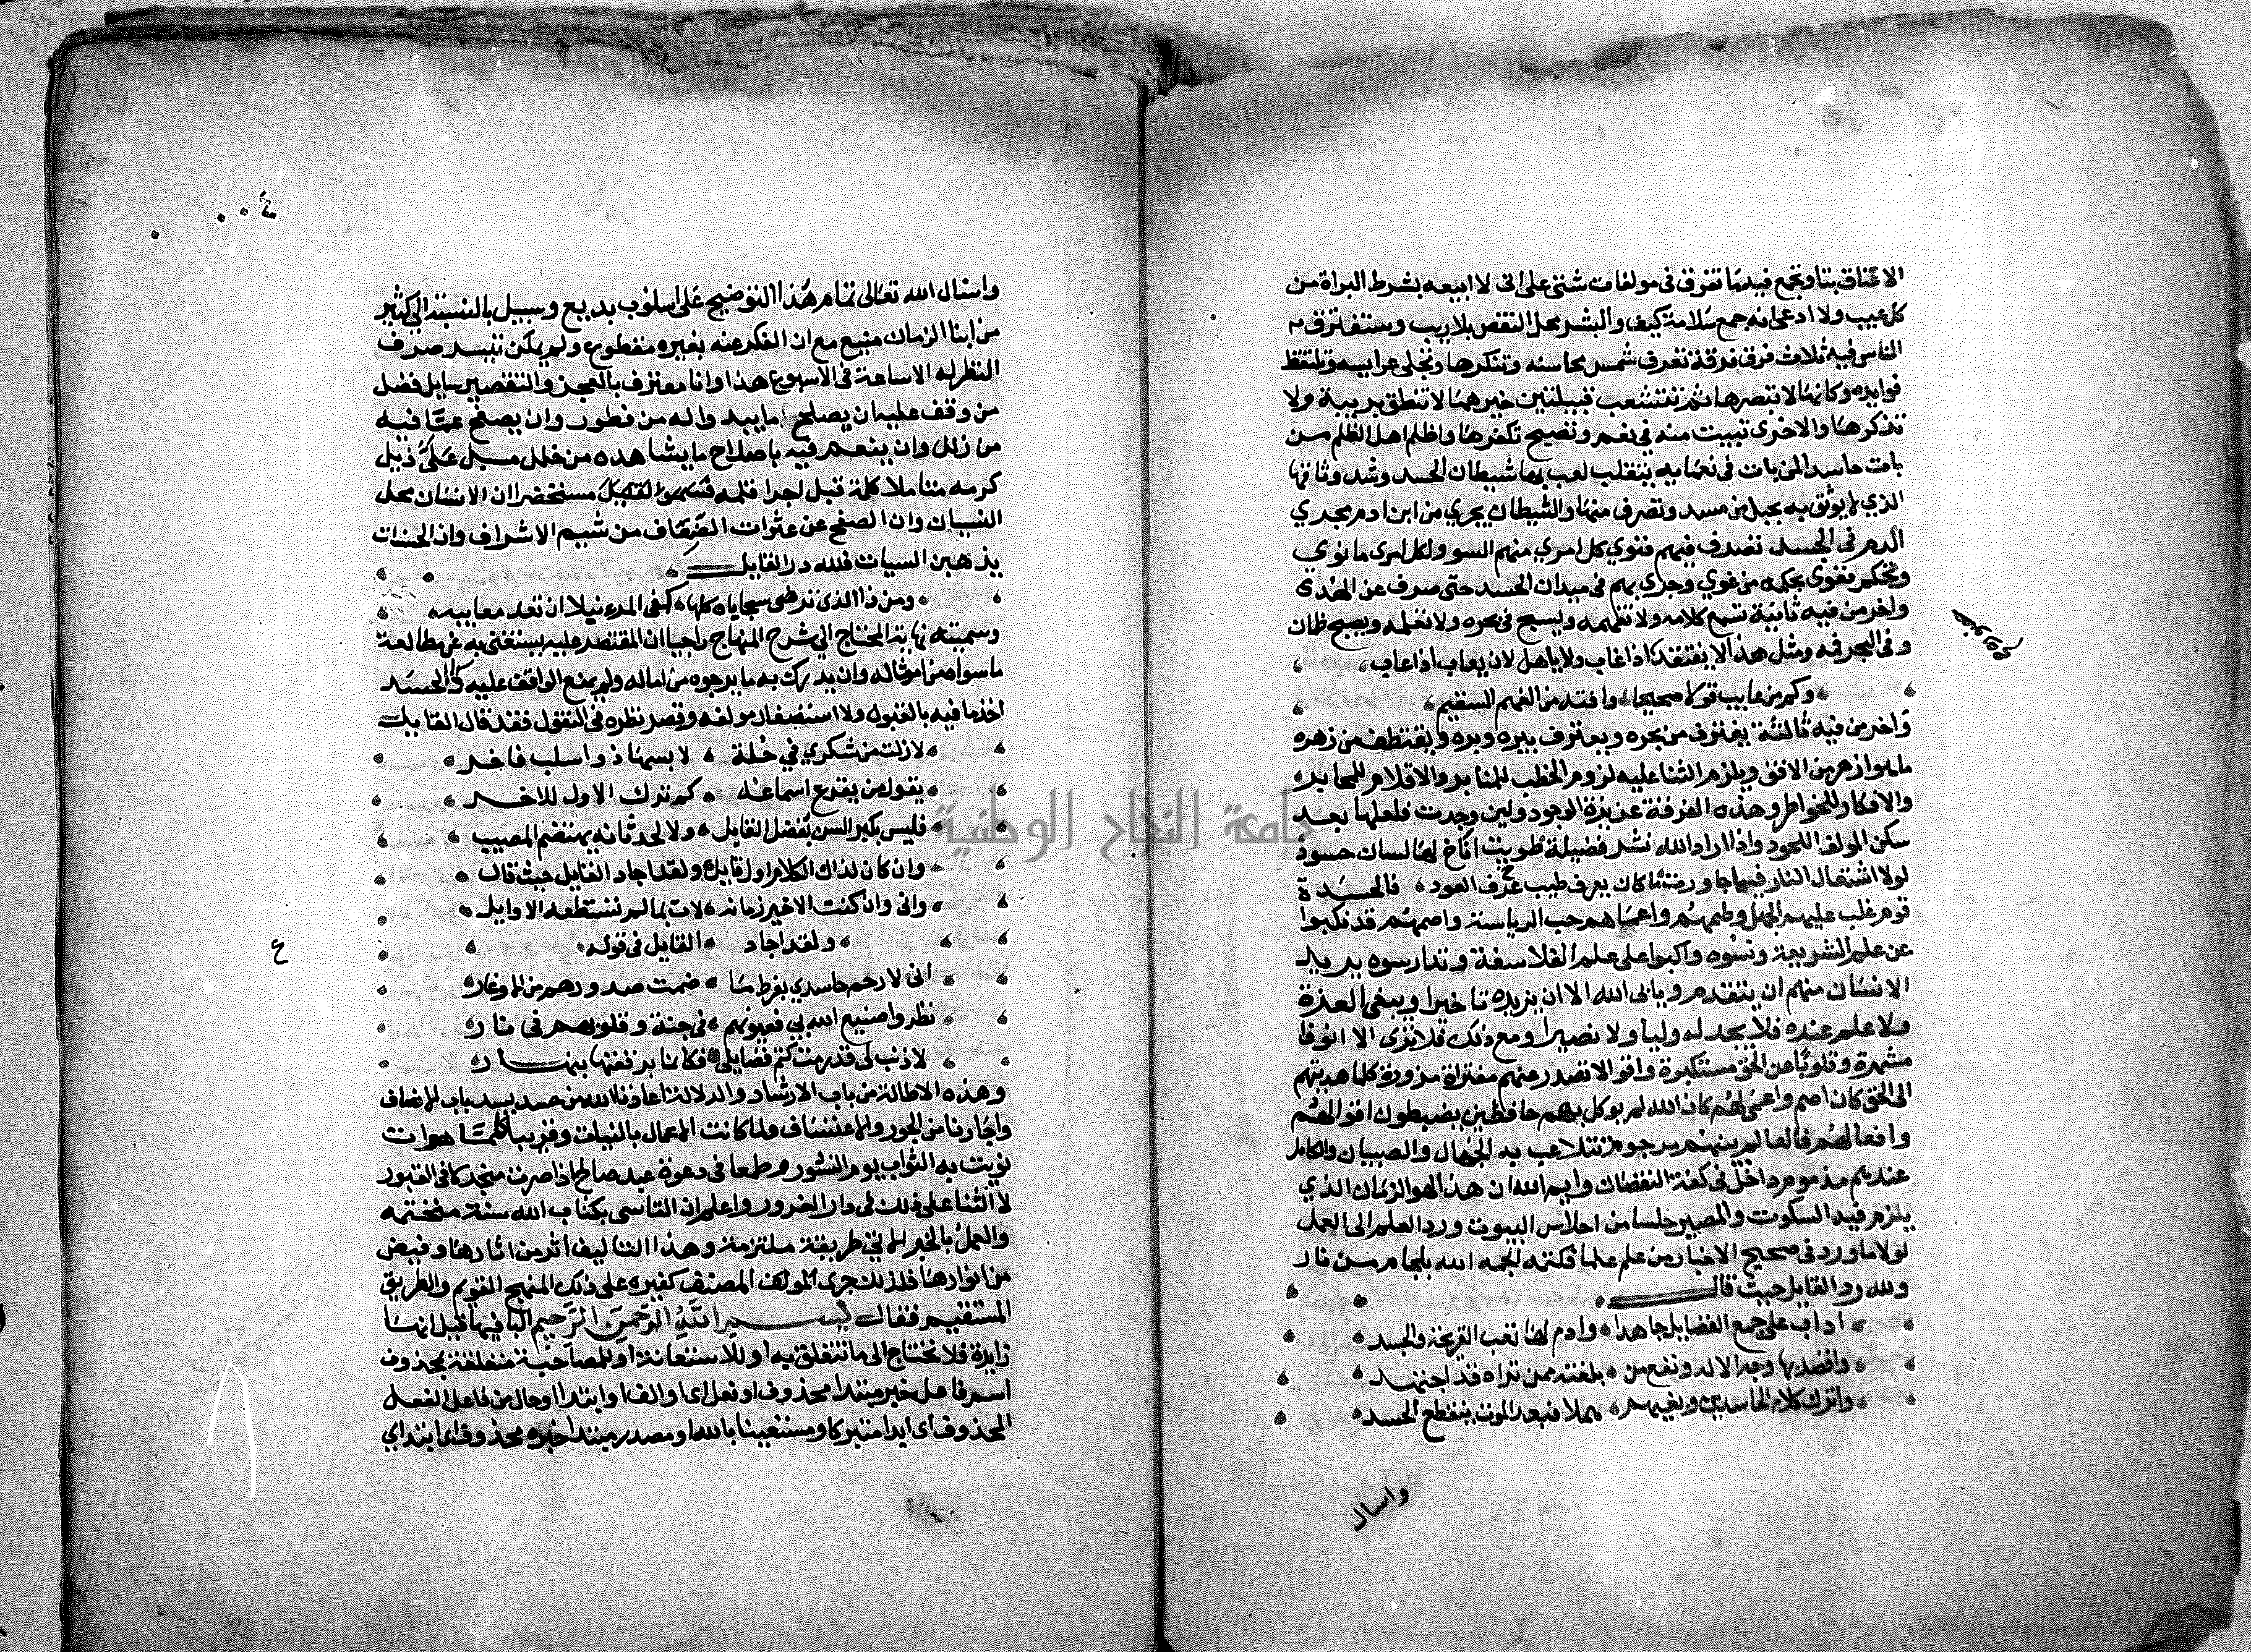 الاعناق بتا وتجمع فيه ما تفرق فى مولفات شتى على انى لا ابيعه بشرط البراة من
كل عيب ولا ادعى انه جمع سلامة كيف والبشر محل النقص بلا ريب وستفترق
الناس فيه ثلاث فرق فرقة تعرف شمس محاسنه وتنكرها وتجلى عرايسه وتلتقط
فوايده وكانها لا تبصرها ثم تتشعب قبيلتين خيرهما لا تنطق بريبة ولا
تذكرها والاخرى تبيت منه في نعم وتصبح تكفرها واظلم اهل الظلم من
بات حاسدا لمن بات في نعمايه يتقلب لعب بها شيطان الحسد وشد وثاقها
الذي لا يوثق به بحبل من مسد وتصرف منها والشيطان يجري من ابن ادم مجري
الدم فى الجسد تصرف فيهم فنوي كل امري منهم السو ولكل امرى ما نوي
وتحكم فغوى بحكمه من غوي وجرى بهم فى ميدان الحسد حتى صرف عن الهدى
واخر من فيه ثانية تسمع كلامه ولا تفهمه ويسبح فى بحره ولا تعلمه ويصبح ظمان
وفى البحر فمه ومثل هذا لا يفتقد اذا غاب ولا ياهل لان يعاب اذا عاب
وكم من عايب قولا صحيحا وافته من الفهم السقيم
واخر من فيه ثالثة يغترف من بحره ويعترف ببره وبره ويقتطف من زهره
ما هو ازهر من الافق ويلزم الثنا عليه لزوم الخطب للمنابر والاقلام للمحابر
والافكار للخواطر وهذه الفرقة عزيزة الوجود ولين وجدت فلعلها بعد
سكن المولف اللحود واذا اراد الله نشر فضيلة طويت اتاح لها لسان حسود
لولا اشتعال النار فيما جاورت ما كان يعرف طيب عرف العود فالحسدة
قوم غلب عليهم الجهل وطمهم واعماهم حب الرياسة واصمهم قد نكبوا
عن علم الشريعة ونسوه واكبوا على علم الفلاسفة وتدارسوه يريد
الانسان منهم ان يتقدم ويابى الله الا ان يزيده تاخيرا ويبغى العزة
ولا علم عنده فلا يجد له وليا ولا نصيرا ومع ذلك فلا ترى الا انوفا
مشمرة وقلوبا عن الحق مستكبرة واقوالا تصدر عنهم مفتراة مزورة كلما هديتهم
الى الحق كان اصم واعمى لهم كان الله لم يوكل بهم حافظين يضبطون اقوالهم
وافعالهم فالعالم بينهم مرجوم تتلاعب به الجهال والصبيان والكامل
عندهم مذموم داخل فى كفة النقصان وايم الله ان هذا لهو الزمان الذي
يلزم فيه السكوت والمصير حلسا من احلاس البيوت ورد العلم الى العمل
لولا ما ورد فى صحيح الاخبار من علم علما فكتمه الجمه الله بلجام من نار
ولله در القايل حيث قال
اداب على جمع الفضايل جاهدا وادم لها تعب القريحة والجسد
واقصد بها وجه الاله ونفع من بلغته ممن تراه قد اجتهد
واترك كلام الحاسدين وبغيهم هملا فبعد الموت ينقطع الحسد
واسال
٠٠٤
واسال الله تعالى تمام هذا التوضيح على اسلوب بديع وسبيل بالنسبة الى كثير
من ابنا الزمان منيع مع ان الفكر عنه بغيره مقطوع ولم يمكن تيسر صرف
النظر له الا ساعة فى الاسبوع هذا وانا معترف بالعجز والتقصير سايل فضل
من وقف عليه ان يصلح ما يبدو له من فطور وان يصفح عما فيه
من زلل وان ينعم فيه باصلاح ما يشاهده من خلل مسبل على ذيل
كرمه متاملا كلمة قبل اجرا قلمه مستحضرا ان الانسان محل
النسيان وان الصفح عن عثرات الضعاف من شيم الاشراف وان الحسنات
يذهبن السيات فلله در القايل
ومن ذا الذى ترضى سجاياه كلها كفى المرء نبلا ان تعد معايبه
وسميته نهاية المحتاج الى شرح المنهاج راجيا ان المقتصر عليه يستغنى به عن مطالعة
ما سواه من امثاله وان يدرك به ما يرجوه من اماله ولم يمنع الواقف عليه دا الحسد
اخذ ما فيه بالقبول ولا استصغار مولفه وقصر نظره فى النقول فقد قال القايل
لا زلت من شكري في حلة لابسها ذو سلب فاخر
يقول من يقرع اسماعه كم ترك الاول للاخر
فليس بكبر السن يفضل القايل ولا لحدثانه يهتضم المصيب
وان كان لذاك الكلام اول قايل ولقد اجاد القايل حيث قال
وانى وان كنت الاخير زمانه لات بما لم تستطعه الاوايل
ولقد اجاد القايل فى قوله
ع
انى لارحم حاسدي بفرط ما ضمت صدورهم من الاوغار
نظروا صنيع الله بي فعيونهم فى جنة وقلوبهم فى نار
لا ذنب لى قد رمت كتم فضايلى فكانما برقعتها بنهار
وهذه الاطالة من باب الارشاد والدلالة اعاذنا الله من حسد يسد باب الانصاف
واجارنا من الجور والاعتساف ولما كانت الاعمال بالنيات وقريبا كلما هو ات
نويت به الثواب يوم النشور وطمعا فى دعوة عبد صالح اذا صرت منجدلا فى القبور
لا الثنا على ذلك فى دار الغرور واعلم ان التاسى بكتاب الله سنة متحتمه
والعمل بالخبر الاتي طريقة ملتزمة وهذا التاليف اثر من اثارها وفيض
من انوارها فلذلك جرى المولف المصنف كغيره على ذلك المنهج القويم والطريق
المستقيم فقال بسم الله الرحمن الرحيم البا فيها قيل انها
زايدة فلا تحتاج الى ما تتعلق به او للاستعانة او للمصاحبة متعلقة بمحذوف
اسم فاعل خبر مبتدا محذوف او فعل اى اولف او ابتدا او حال من فاعل الفعل
المحذوف اى ابدا متبركا ومستعينا بالله او مصدر مبتدا خبره محذوف اى ابتداي